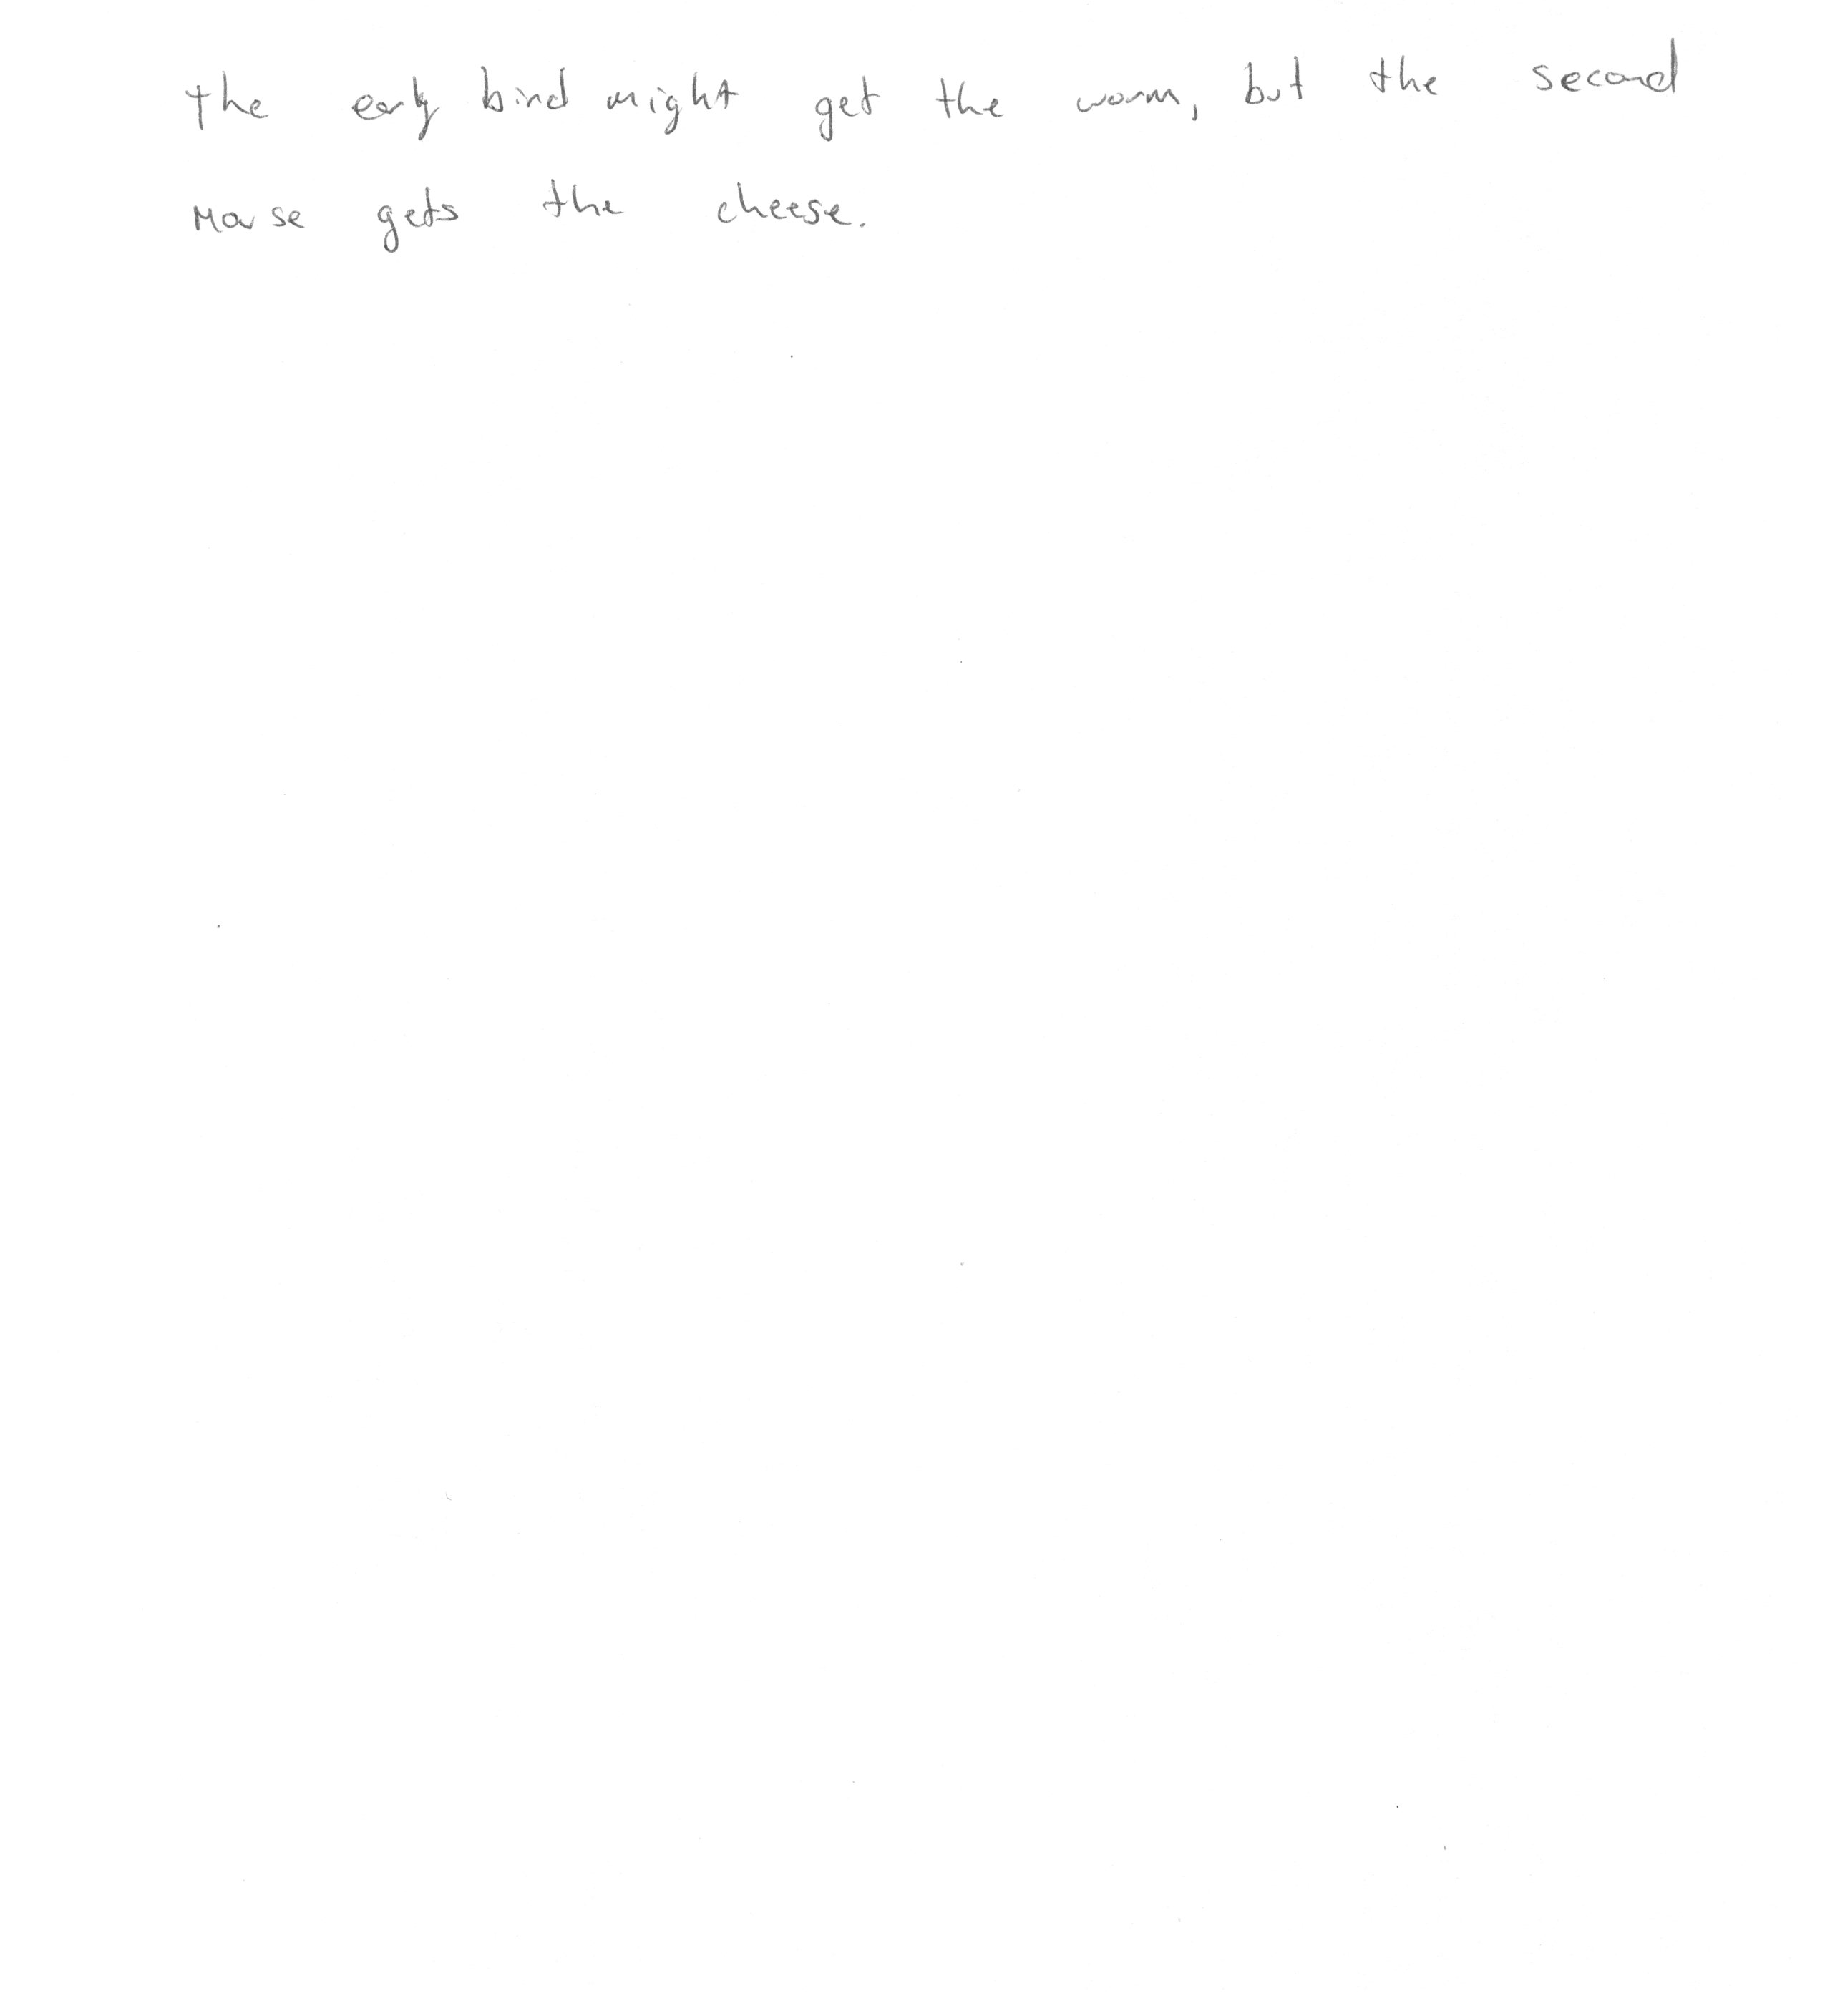 the early bird might get the worm, but the second
mouse gets the cheese.